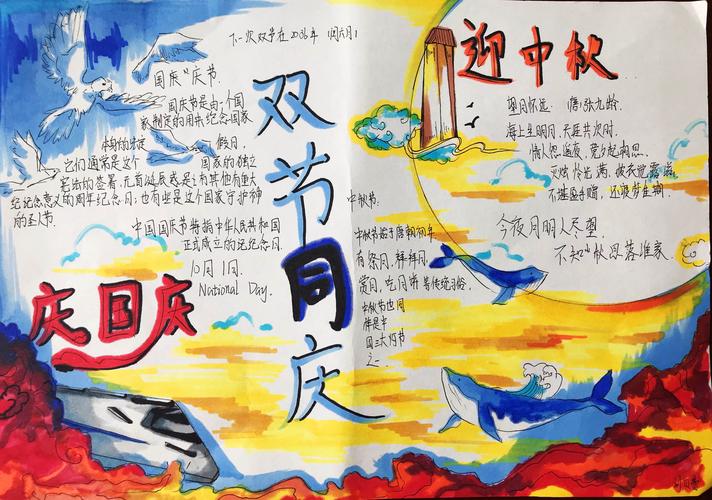 双节同庆
国庆节
国庆节是由一个国
家制定的用来纪念国家
本身的法定
假日.
它们通常是这个
国家的独立
宪法的签署、元首诞辰或是
有其他有重大
纪念意义的周年纪念日;也有些是这个国家守护神
的圣人节.
中国国庆节特指中华人民共和国
正式成立的纪念日.
10月1日.
National Day.
庆国庆
迎中秋
望月怀远 唐:张九龄.
海上生明月,天涯共此时.
情人怨遥夜,竟夕起相思.
灭烛怜光满,披衣觉露滋
不堪盈手赠,还寝梦佳期.
今夜月明人尽望
不知秋思落谁家.
中秋节:
中秋节始于唐朝初年
有祭月、拜月、
赏月、吃月饼等传统习俗.
中秋节也同
样是中
国三大灯节
之一.